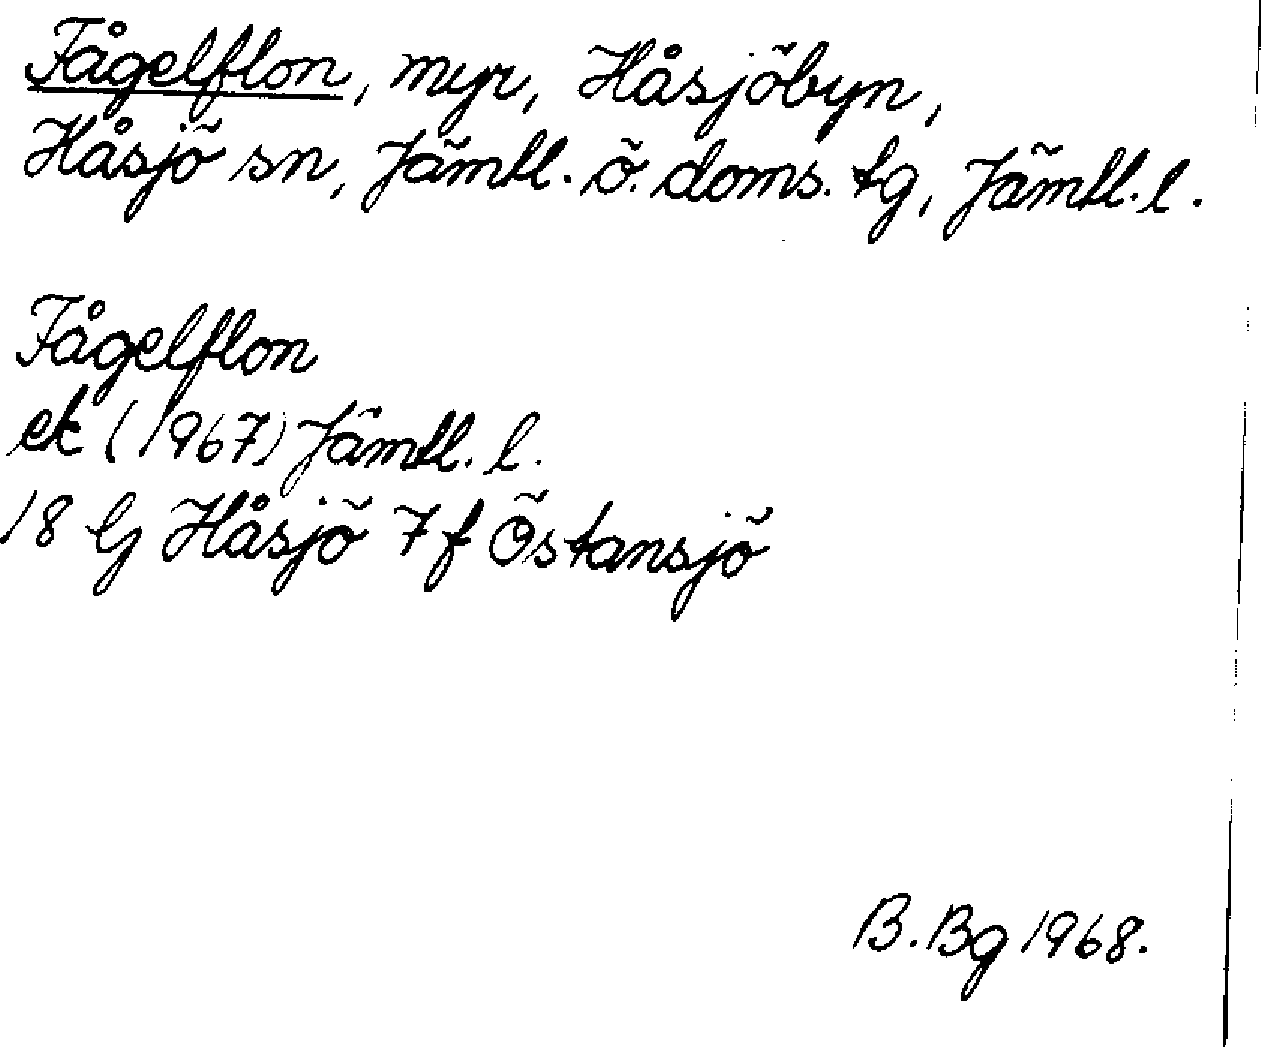 Fågelflon, myr, Håsjöbyn,
Håsjö sn, Jämtl. ö. doms. tg, Jämtl. l.
Fågelflon
ek (1967) Jämtl. l.
18 G Håsjö 7 f Östansjö
B. Bg 1968.